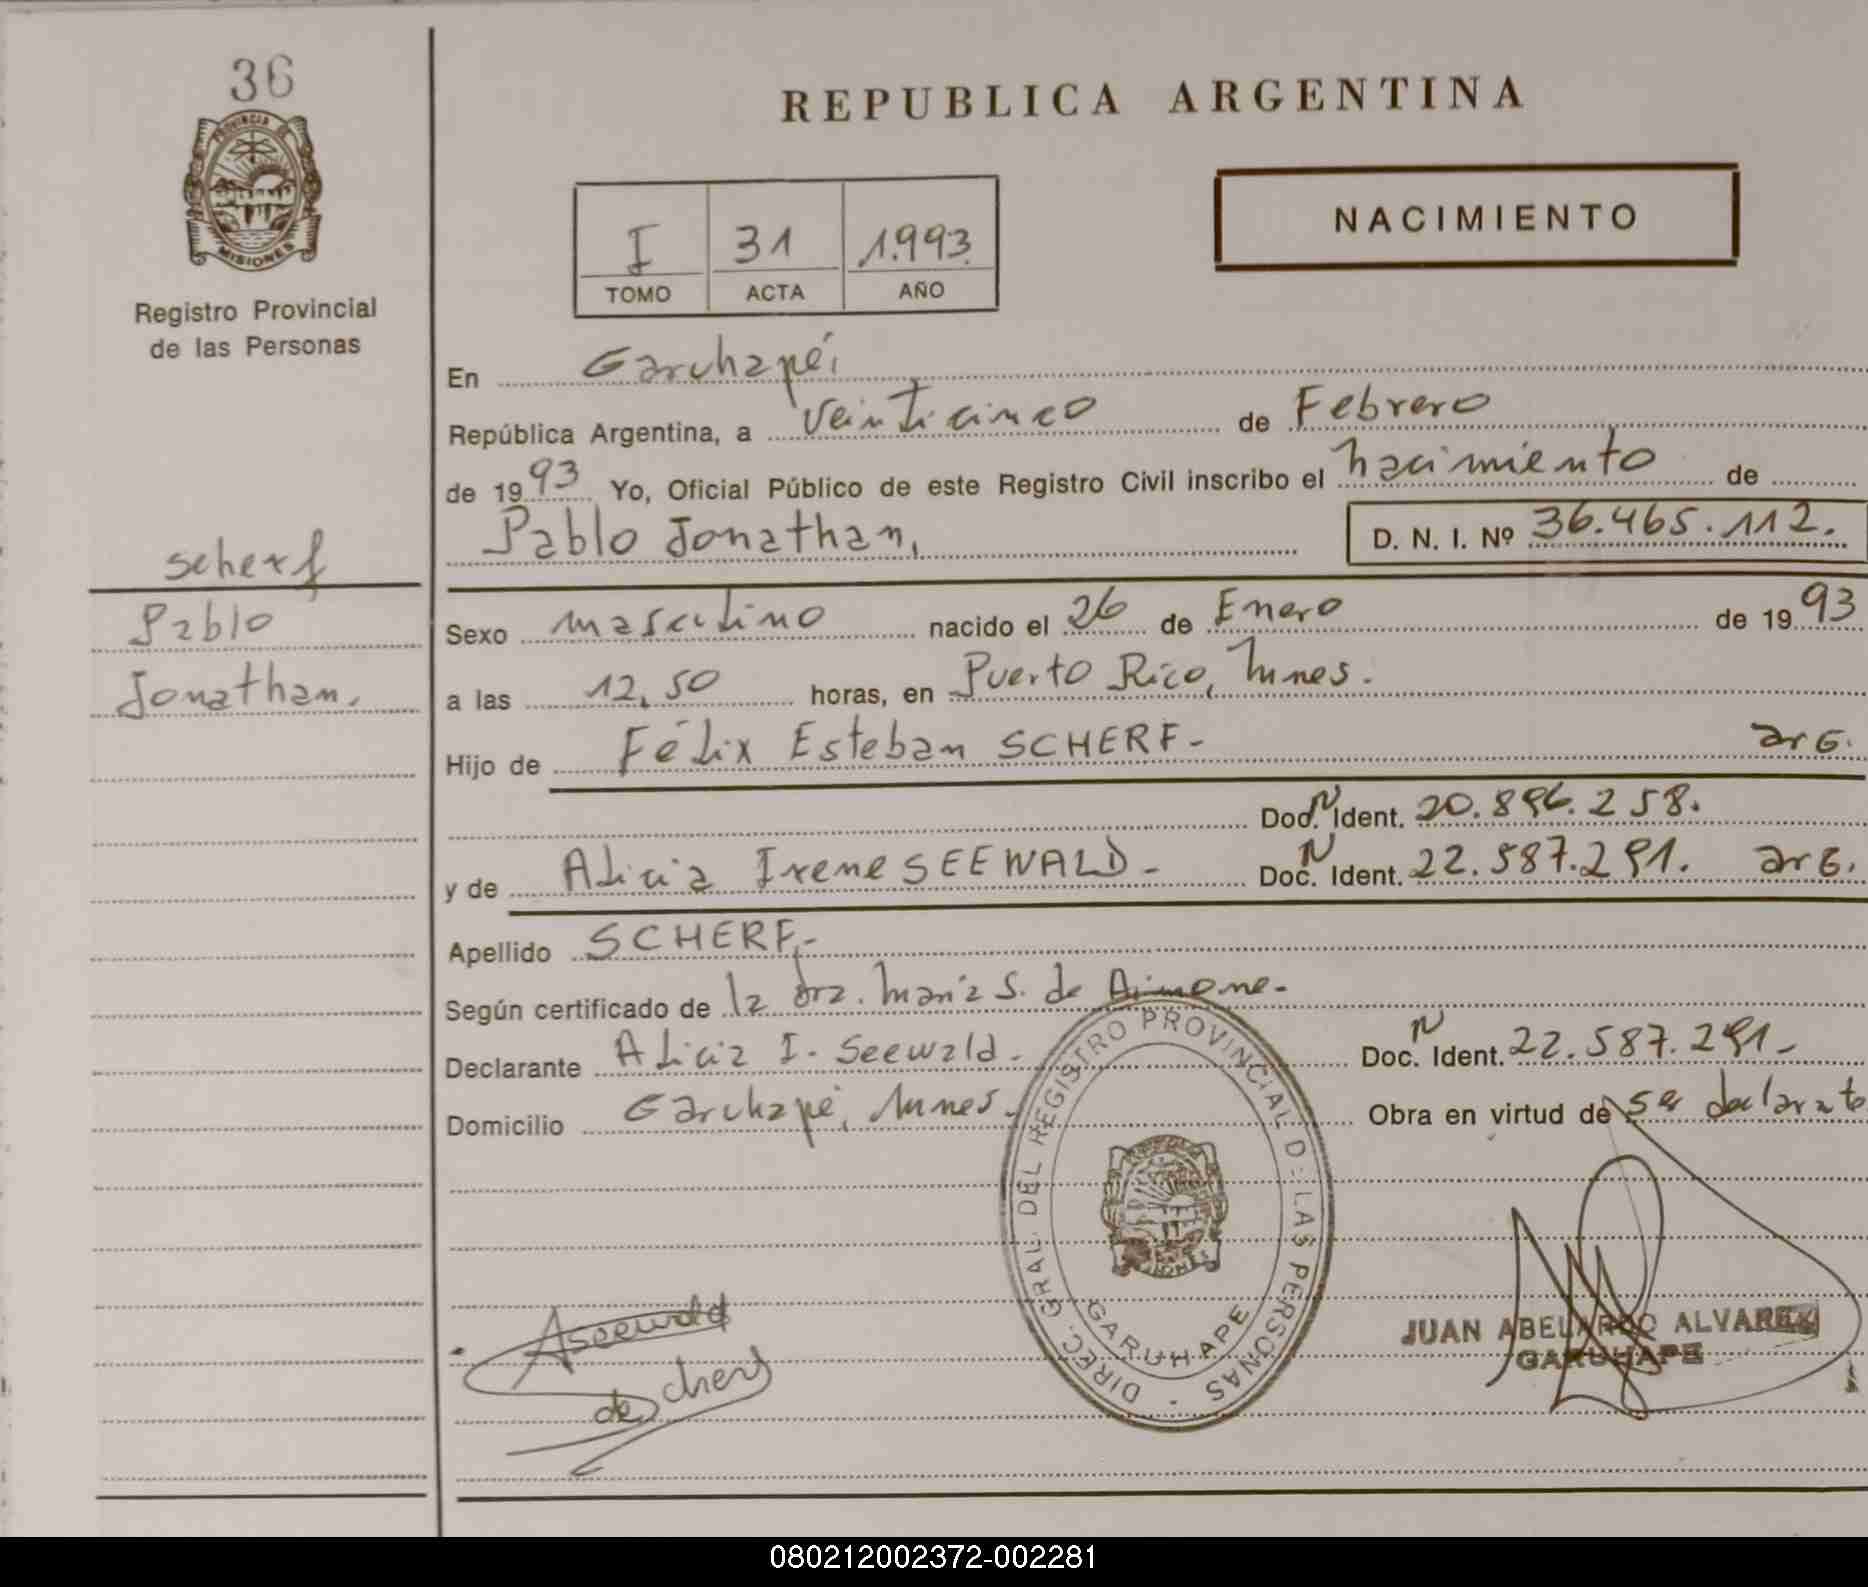 36
PROVINCIA DE
MISIONES
Registro Provincial
de las Personas
REPUBLICA ARGENTINA
I 31 1.993
TOMO ACTA AÑO
NACIMIENTO
En Garuhapé,
República Argentina, a veinticinco de Febrero
de 1993 Yo, Oficial Público de este Registro Civil inscribo el nacimiento de
Pablo Jonathan, D. N. I. Nº 36.465.112.
scherf
Pablo
Jonathan.
Sexo masculino nacido el 26 de Enero de 1993
a las 12,50 horas, en Puerto Rico, Mnes.
Hijo de Félix Esteban SCHERF- arg.
Doc. N Ident. 20.896.258.
y de Alicia Irene SEEWALD- Doc. N Ident. 22.587.291. arg.
Apellido SCHERF,-
Según certificado de la dra. Maria S. de Aimone-
Declarante Alicia I. Seewald- Doc. N Ident. 22.587.291-
Domicilio Garuhapé, Mnes. Obra en virtud de ser declarate
DIREC. GRAL. DEL REGISTRO PROVINCIAL DE LAS PERSONAS -
GARUHAPE
MISIONES
ASeewald
de Scherf
JUAN ABELARDO ALVAREZ
GARUHAPE
080212002372-002281